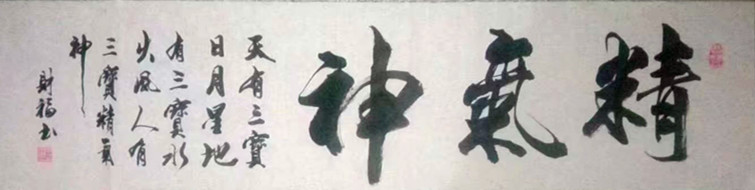 精氣神
天有三寶
日月星地
有三寶水
火風人有
三寶精氣
神
財福书